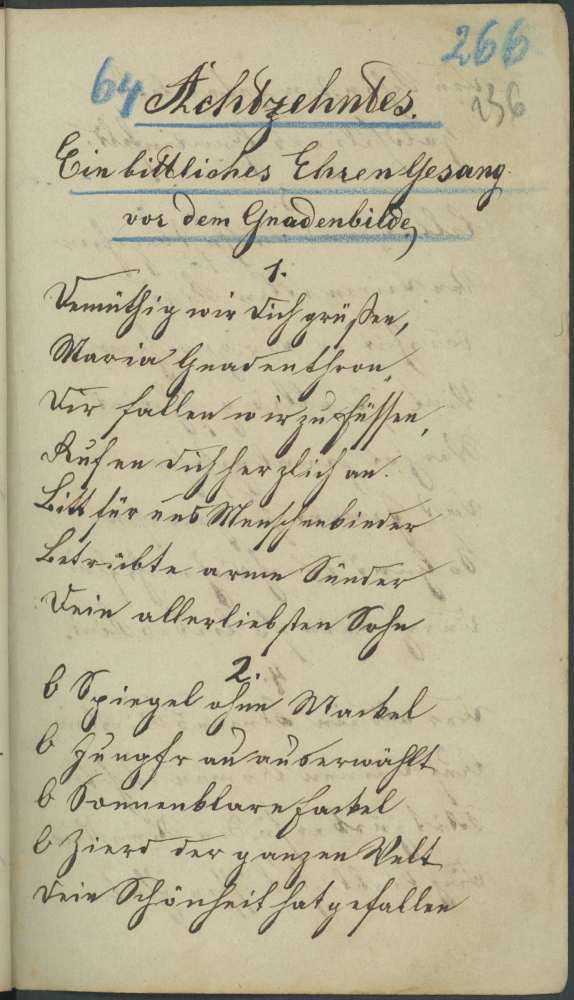 266
64 Achtzehntes.
236
Ein bittliches Ehren Gesang
vor dem Gnadenbilde,
1.
Demüthig wir dich grüßen,
Maria Gnadenthron,
Dir fallen wir zu Füssen,
Rufen dich herzlich an.
Bitt für uns Menschenkinder
Betrübte arme Sünder
Dein allerliebsten Sohn
2.
O Spiegel ohne Mackel
O Jungfrau auserwählt
O Sonnenklare Fackel
O Zierd der ganzen Welt
Dein Schönheit hat gefallen